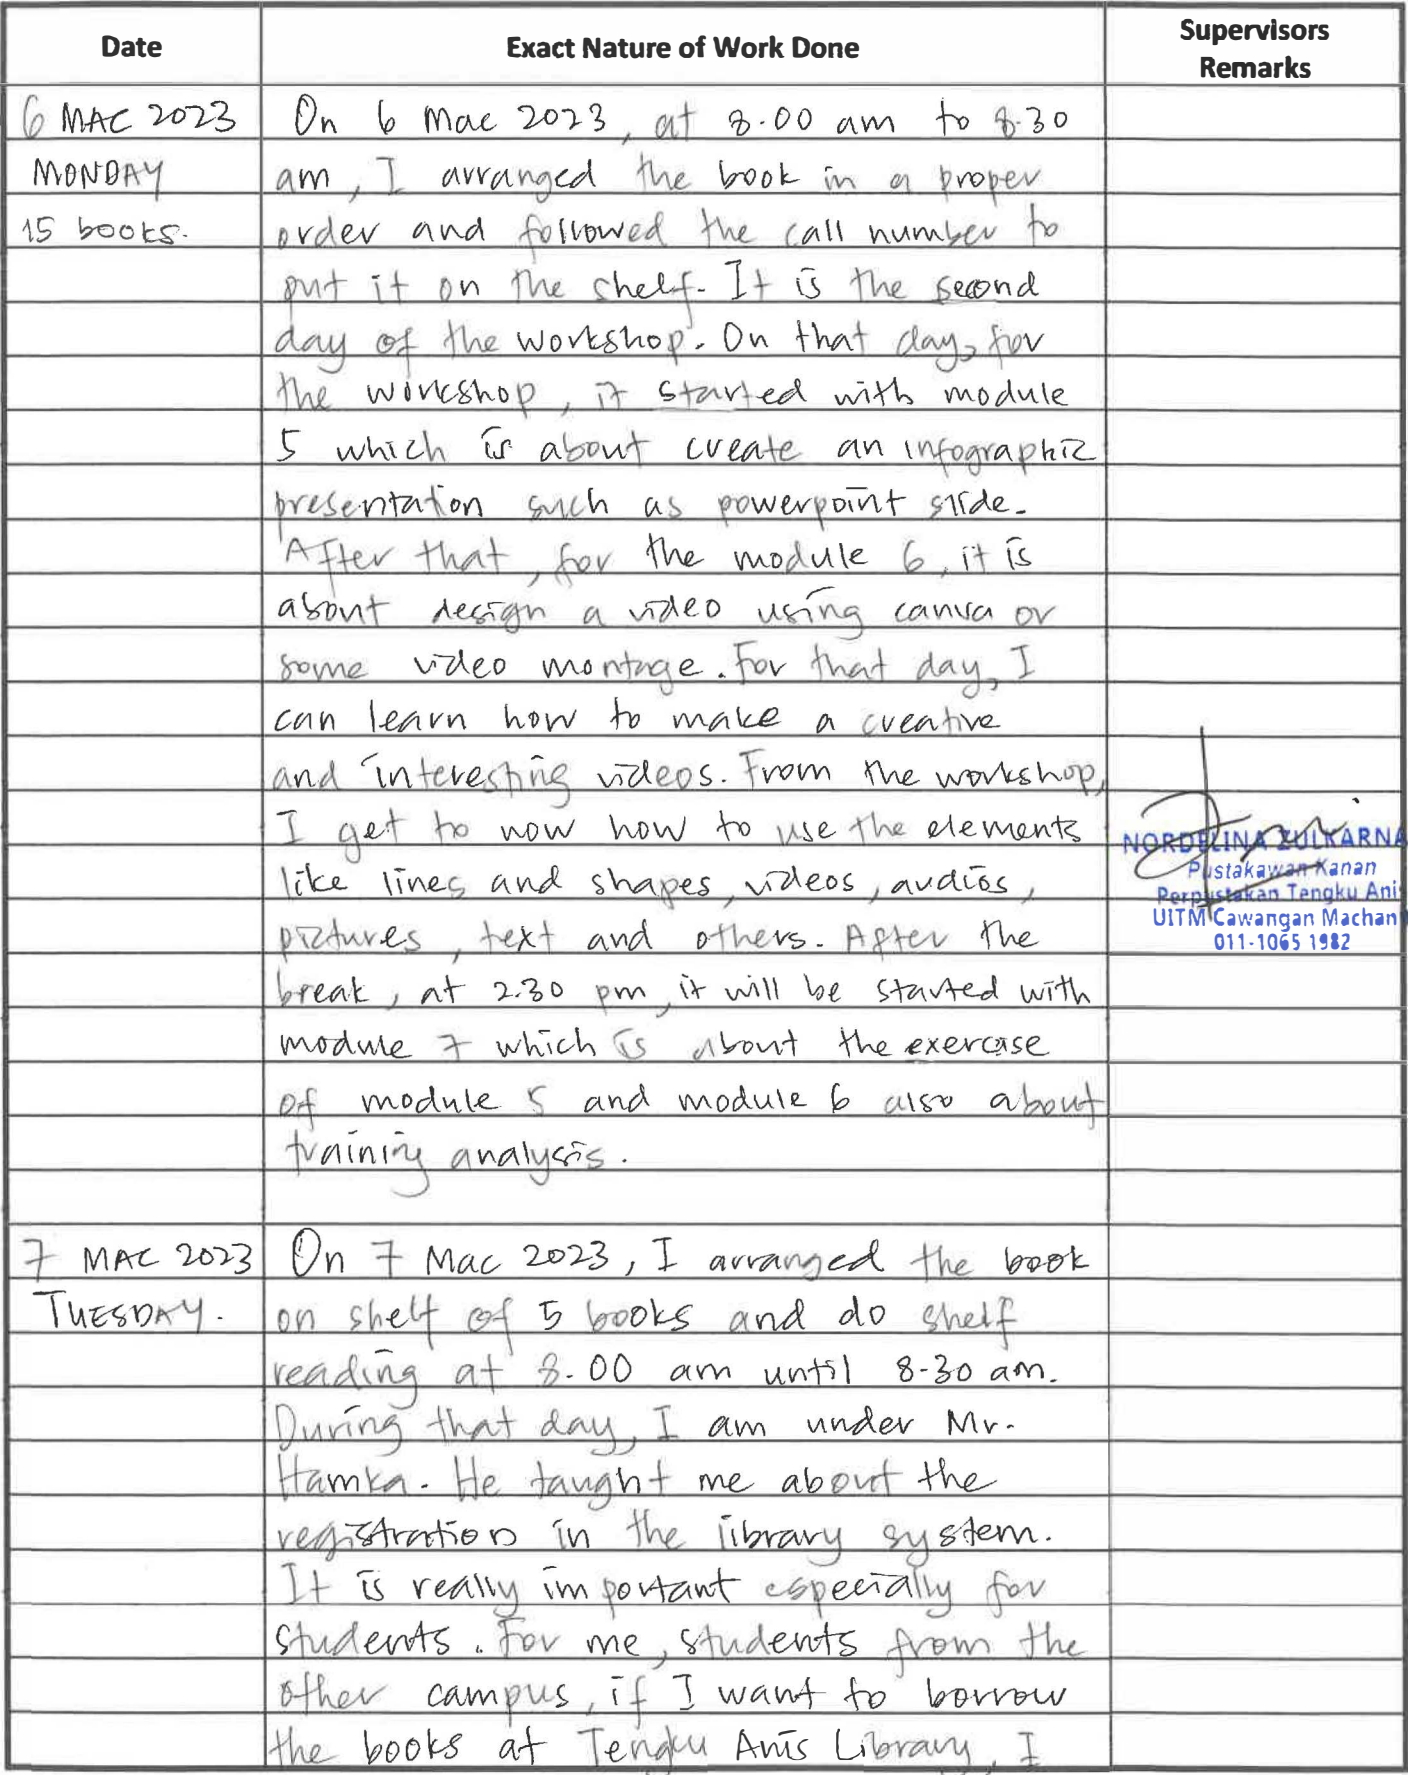 Date
Exact Nature of Work Done
Supervisors
Remarks
6 MAC 2023
MONDAY
15 books.
On 6 Mac 2023, at 8.00 am to 8.30
am, I arranged the book in a proper
order and followed the call number to
put it on the shelf. It is the second
day of the workshop. On that day, for
the workshop, it started with module
5 which is about create an infographic
presentation such as powerpoint slide.
After that, for the module 6, it is
about design a video using canva or
some video montage. For that day, I
can learn how to make a creative
and interesting videos. From the workshop,
I get to now how to use the elements
like lines and shapes, videos, audios,
pictures, text and others. After the
break, at 2.30 pm, it will be started with
module 7 which is about the exercise
of module 5 and module 6 also about
training analysis.
NORDELINA ZULKARNA
Pustakawan Kanan
Perpustakan Tengku Ani
UITM Cawangan Machan
011-1065 1982
7 MAC 2023
TUESDAY.
On 7 Mac 2023, I arranged the book
on shelf of 5 books and do shelf
reading at 8.00 am until 8.30 am.
During that day, I am under Mr.
Hamka. He taught me about the
registration in the library system.
It is really important especially for
students. For me, students from the
other campus, if I want to borrow
the books at Tengku Anis Library, I